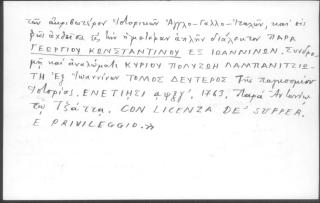 τῶν ἀκριβεστέρων Ἱστορικῶν Ἀγγλο-Γαλλο-Ἰταλῶν, καὶ εἰς
τὴν ἁπλῆν διάλεκτον ΠΑΡΑ
ΓΕΩΡΓΙΟΥ ΚΩΝΣΤΑΝΤΙΝΟΥ ΕΞ ΙΩΑΝΝΙΝΩΝ. Συνδρο-
μῇ καὶ ἀναλώμασι ΚΥΡΙΟΥ ΠΟΛΥΖΩΗ ΛΑΜΠΑΝΙΤΖΙΩ-
ΤΗ Ἐξ Ἰωαννίνων ΤΟΜΟΣ ΔΕΥΤΕΡΟΣ Τῆς παγκοσμίου
Ἱστορίας. ΕΝΕΤΙΗΣΙ αψξγʹ. 1763. Παρὰ Ἀντωνίῳ
τῷ Τζάττα. CON LICENZA DE' SUPPER.
E PRIVILEGGIO.»